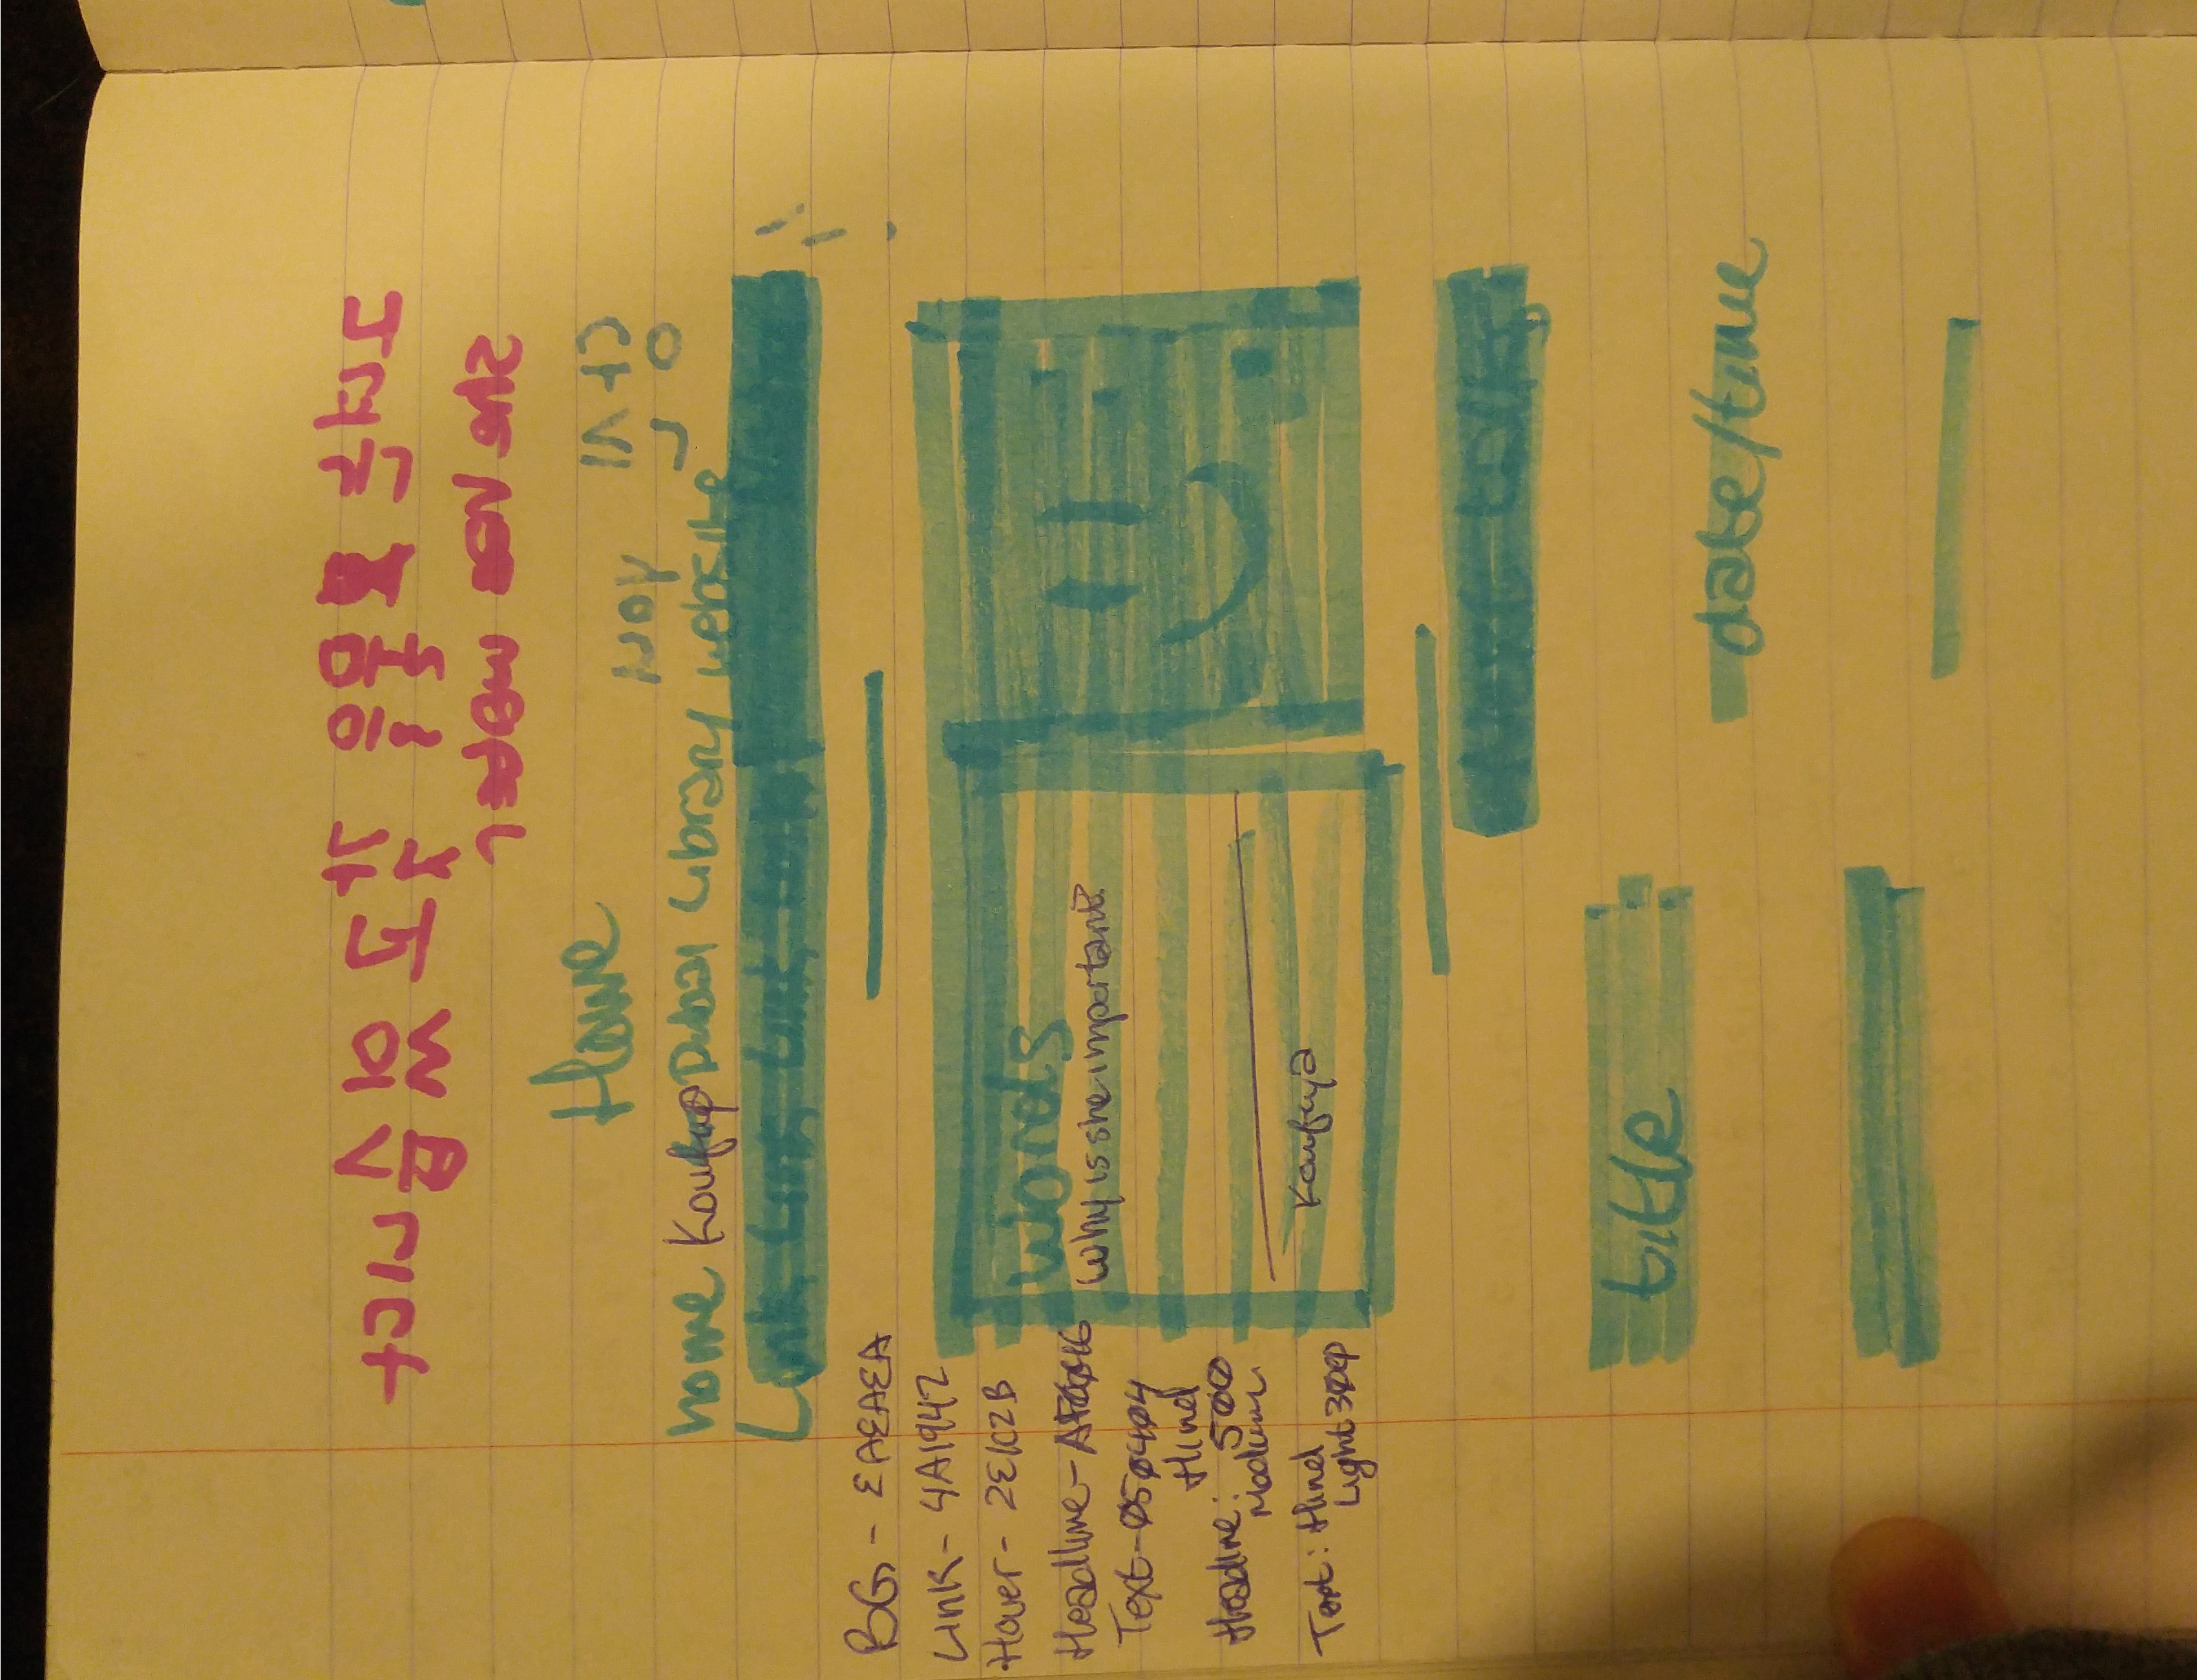 그녀는 물을 가지고 있습니다
she has water
Home
당신 you
home Koufuya Dubai Library website
Link, Link, Link, Link
BG - EAEAEA
Link - 4A1942
Hover - 2E1C2B
Headline -
Text - 050404
Headline: Hind 500 Medium
Text: Hind Light 300
words
Why is she important?
Koufuya
Next talks
title
date/time